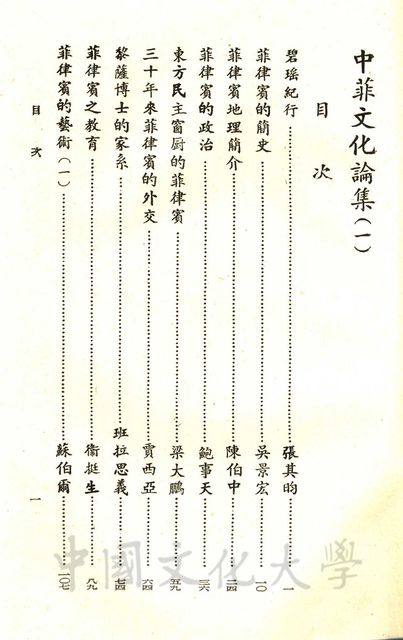 中菲文化論集（一）
目次
碧瑤紀行……張其昀……一
菲律賓的簡史……吳景宏……一〇
菲律賓地理簡介……陳伯中……二四
菲律賓的政治……鮑事天……三六
東方民主窗厨的菲律賓……梁大鵬……五九
三十年來菲律賓的外交……賈西亞……六四
黎薩博士的家系……班拉思義……七四
菲律賓之教育……衞挺生……八九
菲律賓的藝術（一）……蘇伯爾……一〇七
目次
一
中國文化大學